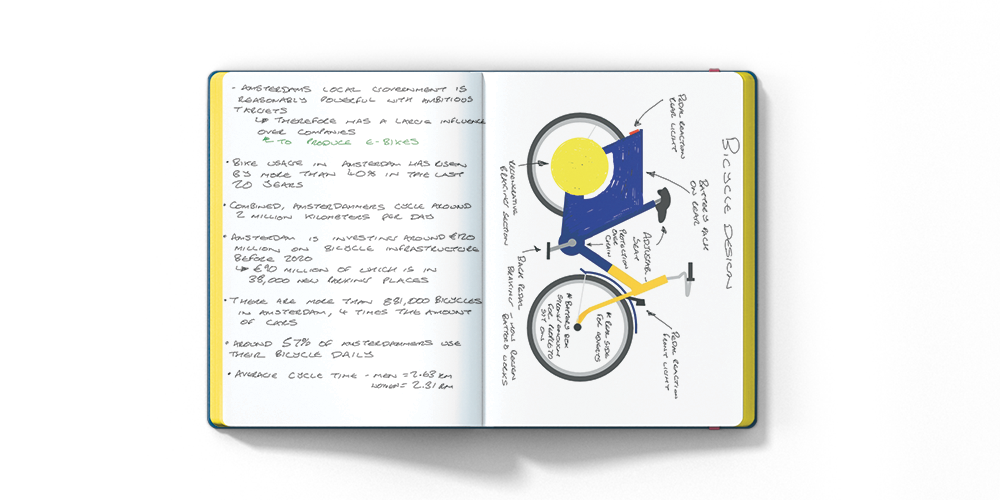 - AMSTERDAMS LOCAL GOVERNMENT IS
REASONABLY POWERFUL WITH AMBITIOUS
TARGETS
↳ THEREFORE HAS A LARGE INFLUENCE
OVER COMPANIES
↳ TO PRODUCE E-BIKES
• BIKE USAGE IN AMSTERDAM HAS RISEN
BY MORE THAN 40% IN THE LAST
20 YEARS
• COMBINED, AMSTERDAMMERS CYCLE AROUND
2 MILLION KILOMETERS PER DAY
• AMSTERDAM IS INVESTING AROUND €120
MILLION ON BICYCLE INFRASTRUCTURE
BEFORE 2020
↳ €90 MILLION OF WHICH IS IN
38,000 NEW PARKING PLACES
• THERE ARE MORE THAN 881,000 BICYCLES
IN AMSTERDAM, 4 TIMES THE AMOUNT
OF CARS
• AROUND 57% OF AMSTERDAMMERS USE
THEIR BICYCLE DAILY
• AVERAGE CYCLE TIME - MEN = 2.63 KM
WOMEN = 2.31 KM
BICYCLE DESIGN
PEDAL REACTION
REAR LIGHT
BATTERY PACK
ON REAR
REGENERATIVE
BRAKING SECTION
ADJUSTABLE
SEAT
PROTECTION
OVER
CHAIN
BACK PEDAL
BRAKING - HOW REGEN
BATTERY WORKS
PEDAL REACTION
FRONT LIGHT
* REAR SIDE
FOR
* BATTERY BOX
STRONG ENOUGH
FOR PERSON TO
SIT ON